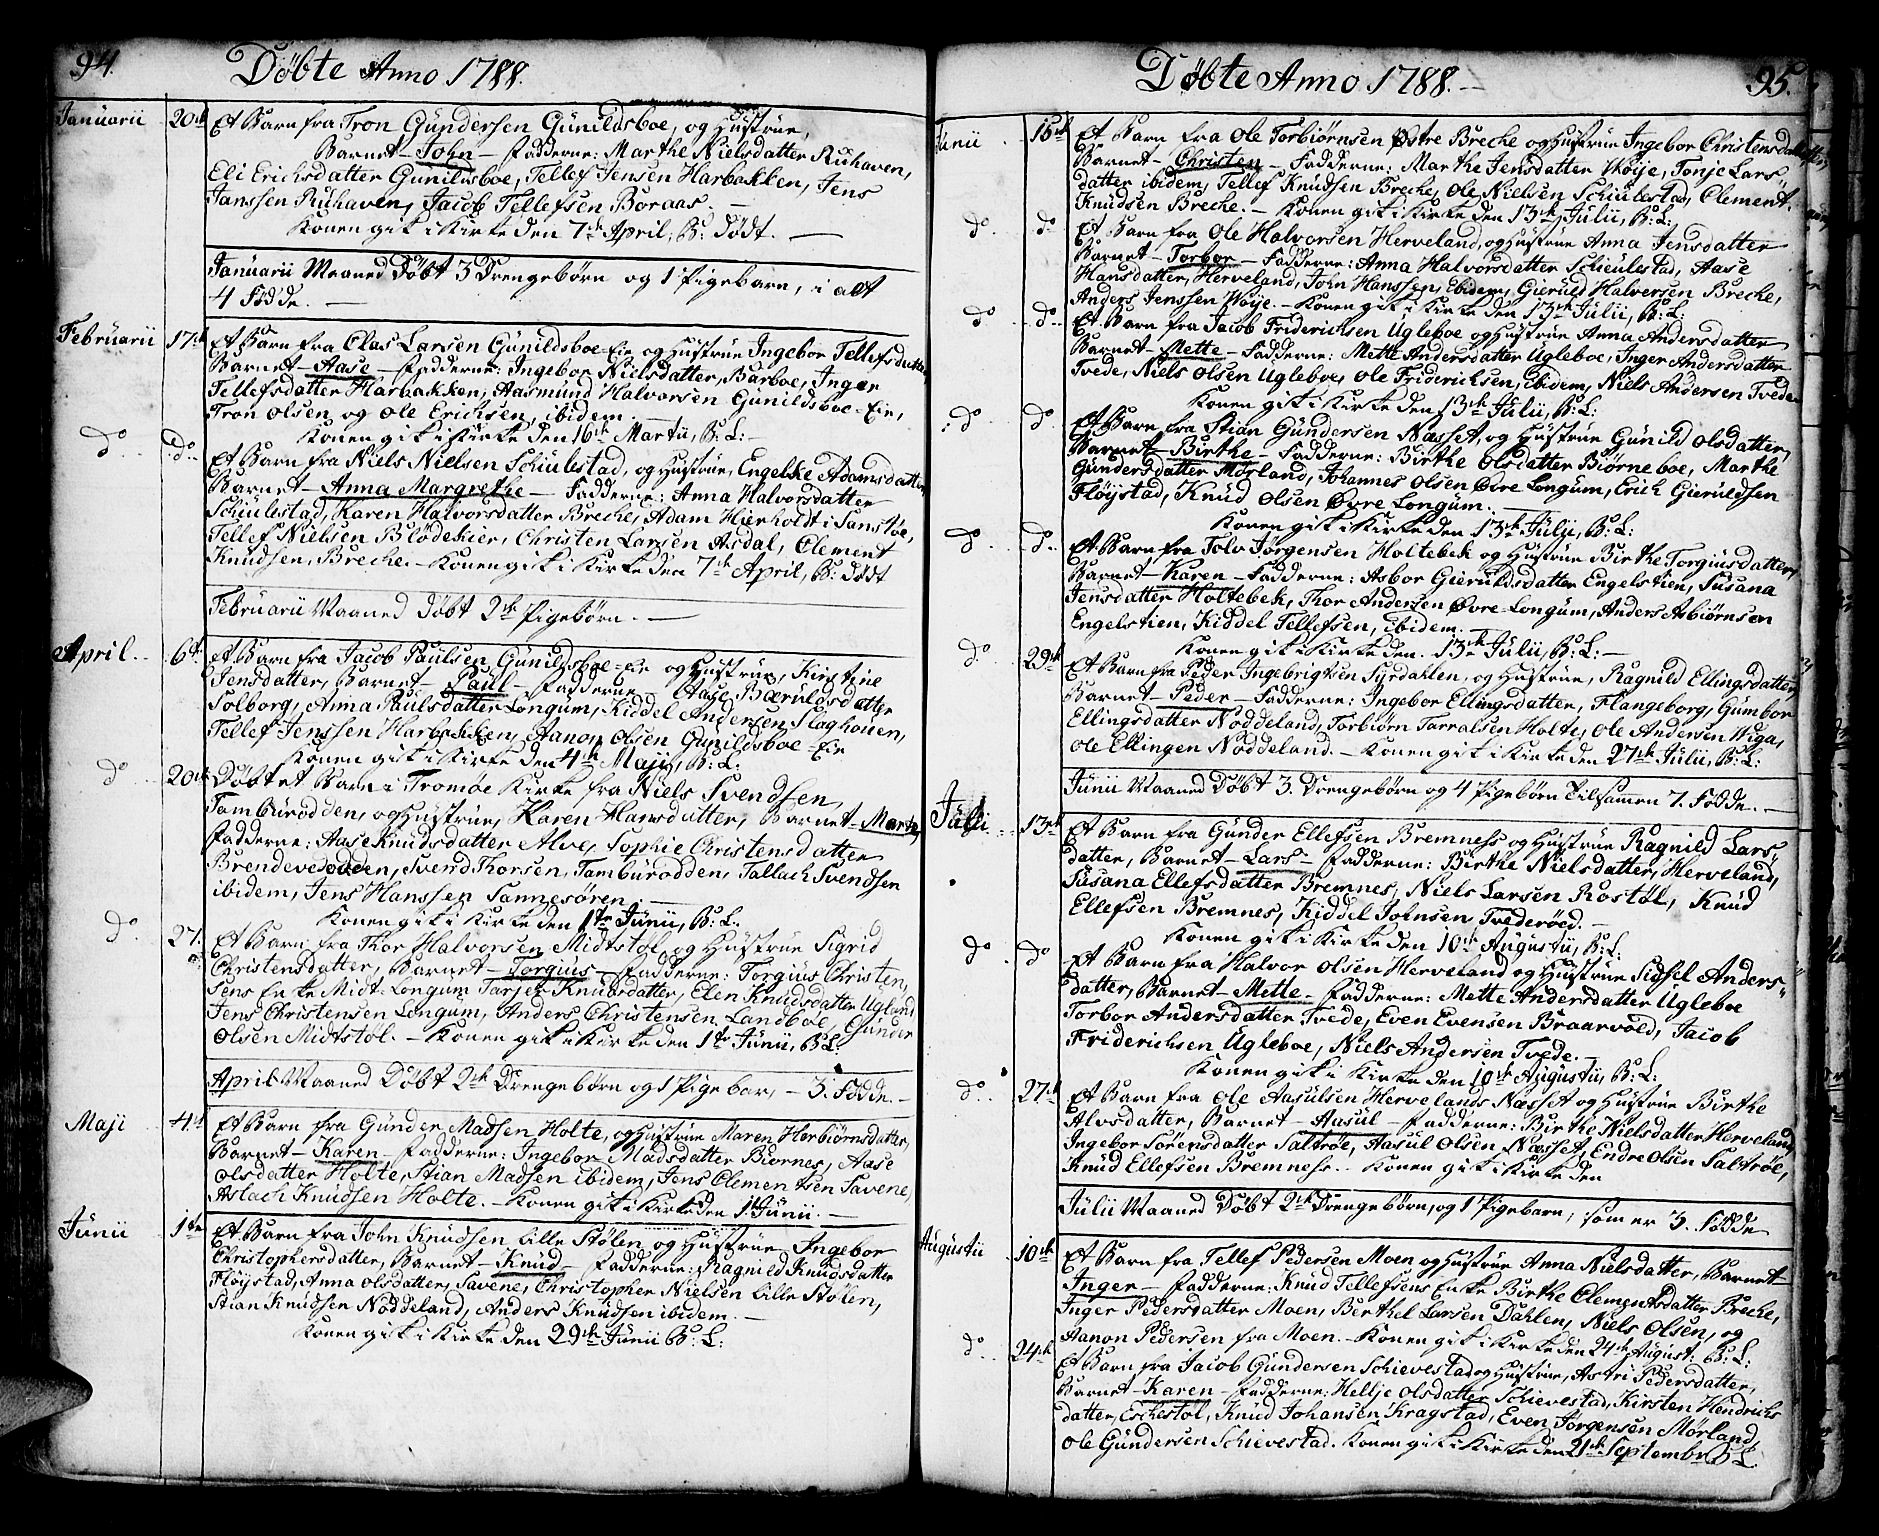 94.
Døbte Anno 1788.
Januarii 20de Et Barn fra Tron Gundersen Gunildsboe, og Hustrue,
Barnet – John – Fadderne: Marthe Nielsdatter Ruhaven,
Eli Erichsdatter Gunildsboe, Tellef Jensen Harbakken, Jens
Janssen Ruhaven, Jacob Tellefsen Boraas. –
Konen gik i Kirke den 7de April, B: Dødt. –
Januarii Maaned Døbt 3 Drengebørn og 1 Pigebarn, i alt
4 Fødde. –
Februarii 17de Et Barn fra Olas Larsen Gunildsboe-Eie og Hustrue Ingebor Tellefsdatter,
Barnet – Aase – Fadderne: Ingebor Nielsdatter, Barboe, Inger
Tellefsdatter Harbakken, Aasmund Halvorsen Gunildsboe-Eie,
Tron Olsen, og Ole Erichsen, ibidem. –
Konen gik i Kirke den 16de Martii, B: L: –
do do Et Barn fra Niels Nielsen Schiulestad, og Hustrue, Engelke Adamsdatter
Barnet – Anna Margrethe – Fadderne: Anna Halvorsdatter
Schiulestad, Karen Halvorsdatter Breche, Adam Hierholdt i Sanstøe,
Tellef Nielsen Blødekier, Christen Larsen Asdal, Clement
Knudsen, Breche. – Konen gik i Kirke den 7de April, B: Dødt
Februarii Maaned Døbt 2de Pigebørn. –
April 6te Et Barn fra Jacob Paulsen Gunildsboe-Eie og Hustrue, Kirstine
Jensdatter, Barnet – Paul – Fadderne Aase Bæruldsdatter
Solborg, Anna Paulsdatter Longum, Kiddel Andersen Slaghouen,
Tellef Jenssen Harbakken, Aanon Olsen Gunildsboe-Eie
Konen gik i Kirke den 4de Maji, B: L:
do 20de Døbt et Barn i Tromøe Kirke fra Niels Svendsen
Tamburodden, og Hustrue, Karen Hansdatter, Barnet – Marte,
Fadderne: Aase Knudsdatter Alve, Sophie Christensdatter
Brendevedodden, Svend Thorsen, Tamburodden, Tallach Svendsen
ibidem, Jens Hanssen Sannesøren. –
Konen gik i Kirke den 1te Junii, B: L:
do 27. Et Barn fra Thor Halvorsen Midtstøl, og Hustrue Sigrid
Christensdatter, Barnet – Torgius – Fadderne: Torgius Christen,
sens Enke Midt-Longum Tarjer Knudsdatter, Elen Knudsdatter Ugland
Jens Christensen Longum, Anders Christensen Landboe, Gunder
Olsen Midtstøl. – Konen gik i Kirke den 1te Junii, B: L:
April Maaned Døbt 2de Drengebørn og 1 Pigebar, – 3. Fødde. –
Maji 4de Et Barn fra Gunder Madsen Holte, og Hustrue Maren Herbiørnsdatter,
Barnet – Karen – Fadderne: Ingebor Madsdatter Biornes, Aase
Olsdatter Holte, Stian Madsen ibidem, Jens Clementsen Savene,
Aslach Knudsen Holte. – Konen gik i Kirke den 1te Junii. –
Junii 1te Et Barn fra John Knudsen Lille Stølen og Hustrue Ingebor
Christophersdatter, Barnet – Knud – Fadderne: Ragnild Knudsdatter
Fløystad, Anna Olsdatter, Savene, Christopher Nielsen Lille Stølen,
Stian Knudsen Noddeland, Anders Knudsen ibidem. –
Konen gik i Kirke den 29de Junii B: L:
95.
Døbte Anno 1788. –
Junii 15de Et Barn fra Ole Torbiørnsen Østre Breche og Hustrue Ingebor Christensdatter,
Barnet – Christen – Fadderne: Marthe Jensdatter Woije, Tonje Lars-
datter ibidem, Tellef Knudsen Breche, Ole Nielsen Schiulestad, Clement
Knudsen Breche. – Konen gik i Kirke den 13de Julii, B: L:
do do Et Barn fra Ole Halvorsen Herveland, og Hustrue Anna Jensdatter
Barnet – Torbor – Fadderne: Anna Halvorsdatter Schiulestad, Aase
Hansdatter, Herveland, John Hanssen, Ebidem, Gieruld Halversen Breche,
Anders Jenssen Woije. – Konen gik i Kirke den 13de Julii, B: L:
do do Et Barn fra Jacob Friderichsen Ugleboe og Hustrue Anna Andersdatter
Barnet – Mette – Fadderne: Mette Andersdatter Ugleboe, Inger Andersdatter
Tvede, Niels Olsen Ugleboe, Ole Friderichsen, Ebidem, Niels Andersen Tvede
Konen gik i Kirke den 13de Julii, B: L:
do do Et Barn fra Stian Gundersen Næsset, og Hustrue Gunild Olsdatter,
Barnet – Birthe – Fadderne: Birthe Olsdatter Biørneboe, Marthe
Gundersdatter Mørland, Johannes Olsen Øvre Longum, Erich Gieruldsen
Fløystad, Knud Olsen Øvre Longum. –
Konen gik i Kirke den 13de Julii, B: L:
do do Et Barn fra Tolv Jørgensen Holtebek og Hustrue Birthe Torgiusdatter,
Barnet – Karen – Fadderne: Asbor Gieruldsdatter Engelstien, Susana
Jensdatter Holtebek, Thor Andersen Øvre-Longum, Anders Asbiørnsen
Engelstien, Kiddel Tellefsen, Ebidem. –
Konen gik i Kirke den. 13de Julii, B: L: –
do 29de Et Barn fra Peder Ingebrigtsen Syrdahlen, og Hustrue, Ragnild Ellingsdatter,
Barnet – Peder – Fadderne: Ingebor Ellingsdatter, Flangeborg, Gumbor
Ellingsdatter Noddeland, Torbiørn Tarralsen Holte, Ole Andersen Wiga,
Ole Ellingen Noddeland. – Konen gik i Kirke den 27de Julii, B: L:
Junii Maaned Døbt 3. Drengebørn og 4 Pigebørn Tilsamen 7. Fødde. –
Julii 13de Et Barn fra Gunder Ellefsen Bremness og Hustrue Ragnild Lars-
datter, Barnet – Lars – Fadderne: Birthe Nielsdatter, Herveland,
Susana Ellefsdatter Bremnes, Niels Larsen Rostøl, Knud
Ellefsen Bremnes, Kiddel Johnsen Tvederøed. –
Konen gik i Kirke den 10de Augustii, B: L:
do do Et Barn fra Halvor Olsen Herveland og Hustrue Sidsel Anders-
datter, Barnet – Mette – Fadderne: Mette Andersdatter Ugleboe
Torbor Andersdatter Tvede, Even Evensen Braarvold, Jacob
Friderichsen Ugleboe, Niels Andersen Tvede. –
Konen gik i Kirke den 10de Augustii, B: L:
do 27de Et Barn fra Ole Aasulsen Hervelands Næsset og Hustrue Birthe
Alvsdatter, Barnet – Aasul – Fadderne: Birthe Nielsdatter Herveland,
Ingebor Sørensdatter Saltrøe, Aasul Olsen Næsset, Endre Olsen Saltrøe,
Knud Ellefsen Bremness. – Konen gik i Kirke den
Julii Maaned Døbt 2de Drengebørn, og 1 Pigebarn, som er 3. Fødde
Augustii 10de Et Barn fra Tellef Pedersen Moen og Hustrue Anna Nielsdatter, Barnet –
Inger – Fadderne: Knud Tellefsens Enke Birthe Clementsdatter Breche,
Inger Pedersdatter Moen, Berthel Larsen Dahlen, Niels Olsen, og
Aanon Pedersen fra Moen. – Konen gik i Kirke den 24de August: B: L:
do 24de Et Barn fra Jacob Gundersen Schievestad og Hustrue, Astri Pedersdatter,
Barnet – Karen – Fadderne: Hellje Olsdatter Schievestad, Kirsten Hendrichs
datter, Eschestøl, Knud Johansen Kragstad, Even Jørgensen Mørland,
Ole Gundersen Schievestad. Konen gik i Kirke den 21de September B: L.